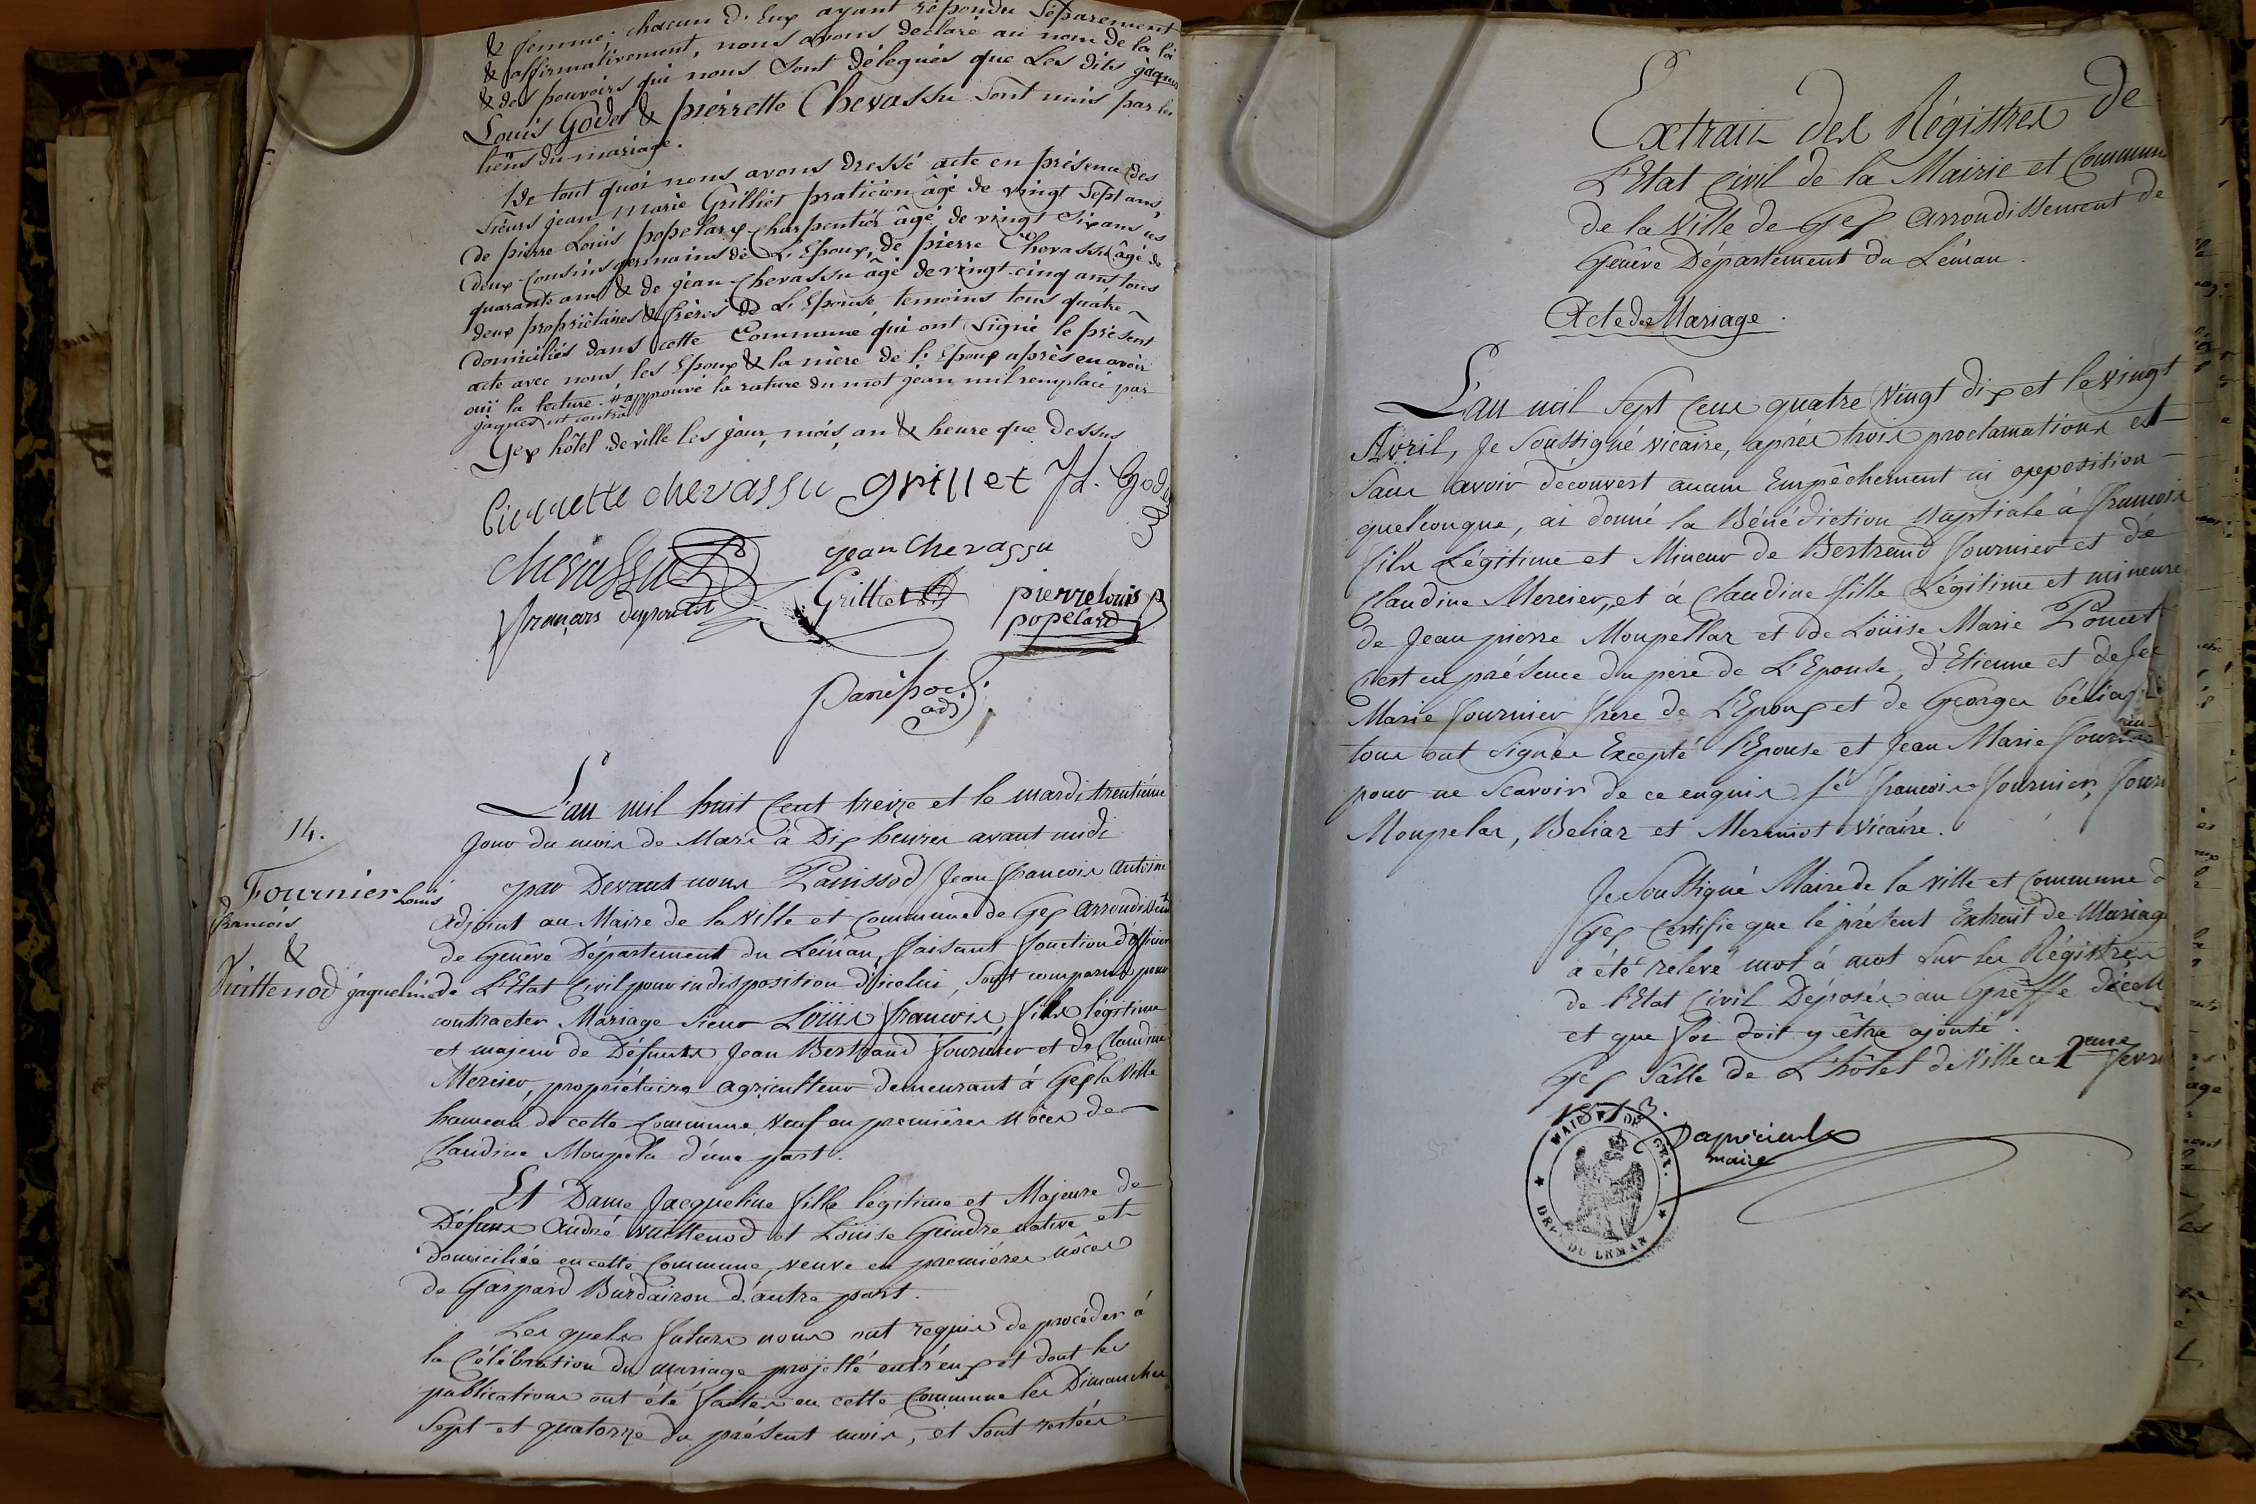 & femme; chacun d'Eux ayant répondu séparément
& affirmativement, nous avons déclaré au nom de la loi
& des pouvoirs qui nous sont délegués que Les dits jâques
Louis Godet & pierrette Chevassu sont unis par les
liens du mariage.
De tout quoi nous avons dressé acte en présence des
sieurs jean Marie Grilliet praticien âgé de vingt sept ans,
de pierre Louis popelard charpentier âgé de vingt six ans
deux Cousins germains de L'Epoux, de pierre Chevassu âgé de
quarante ans & de jean Chevassu âgé de vingt-cinq ans tous
deux propriétaires & frères de L'Epouse témoins tous quatre
domiciliés dans cette Commune qui ont signé le présent
acte avec nous, les Epoux & la mère de l'Epoux après en avoir
ouï la lecture. approuvé la rature du mot jean nul remplacé par
jaques
Gex hôtel de ville les jour, mois, an & heure que dessus
Pierrette chevassu grilliet Jd. Godet
Chevassu jean Chevassu
françois Grilliet pierre louis
popelard
Panissod
adj.
L'an mil huit Cent treize et le mardi trentième
14.
Jour du mois de Mars à Dix heures avant midi
Fournier Louis
par Devant nous Panissod Jean François Antoine
françois
Adjoint au Maire de la ville et Commune de Gex Arrondissement
&
de Genêve Département du Léman, faisant fonction d'officier
Vuittenod jaqueline
de L'Etat Civil pour indisposition d'icelui, sont comparus pour
contracter Mariage sieur Loüis François, fils légitime
et majeur de Défunts Jean Bertrand fournier et de Claudine
Mercier, propriétaire agriculteur demeurant à Gex la Ville
hameau de cette Commune veuf en premières nôces de
Claudine Moupela d'une part.
Et Dame Jacqueline fille légitime et Majeure de
Défunts André Vuittenod et Loüise Gindre native et
domiciliée en cette Commune, veuve en premières nôces
de Gaspard Burdairon d'autre part.
Les quels futurs nous ont requis de procéder à
la Célébration du mariage projetté entr'eux et dont les
publications ont été faites en cette Commune les Dimanches
Sept et quatorze du présent mois, et sont restées
Extrait des Régistres de
L'Etat Civil de la Mairie et Commune
de la Ville de Gex Arrondissement de
Genêve Département du Léman.
Acte de Mariage.
L'an mil Sept Cent quatre Vingt dix et le vingt
Avril, Je Soussigné vicaire, après trois proclamations et
sans avoir découvert aucun Empêchement ni opposition
quelconque, ai donné la Bénédiction Nuptiale à françois
fils Légitime et Mineur de Bertrand fournier et de
Claudine Mercier, et à Claudine fille Légitime et mineure
de Jean pierre Moupellar et de Loüise Marie Poncet
C'est en présence du pere de L'Epouse, d'Etienne et de Jean
Marie fournier frere de L'Epoux et de George Béliar
tous ont signés Excepté l'Epouse et Jean Marie fournier
pour ne Scavoir de ce enquis. sé. françois fournier,
Moupelar, Beliar et Mermiot Vicaire.
Je Soussigné Maire de la ville et Commune de
Gex Certifie que le présent Extrait de Mariage
a été relevé mot à mot sur les Régistres
de l'Etat Civil Déposés au Greffe d'icelle
et que foi doit y être ajouté.
Gex Salle de L'hôtel de Ville ce 2eme fevrier
1813.
MAIRIE DE GEX.
maire
DEPT DU LEMAN